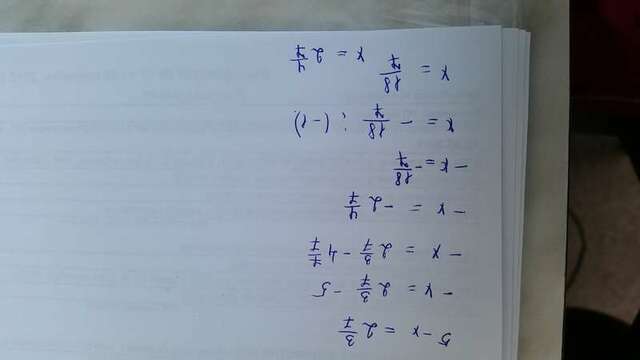 5 - x = 2 3/7
- x = 2 3/7 - 5
- x = 2 3/7 - 4 7/7
- x = - 2 4/7
- x = - 18/7
x = - 18/7 : (-1)
x = 18/7 x = 2 4/7